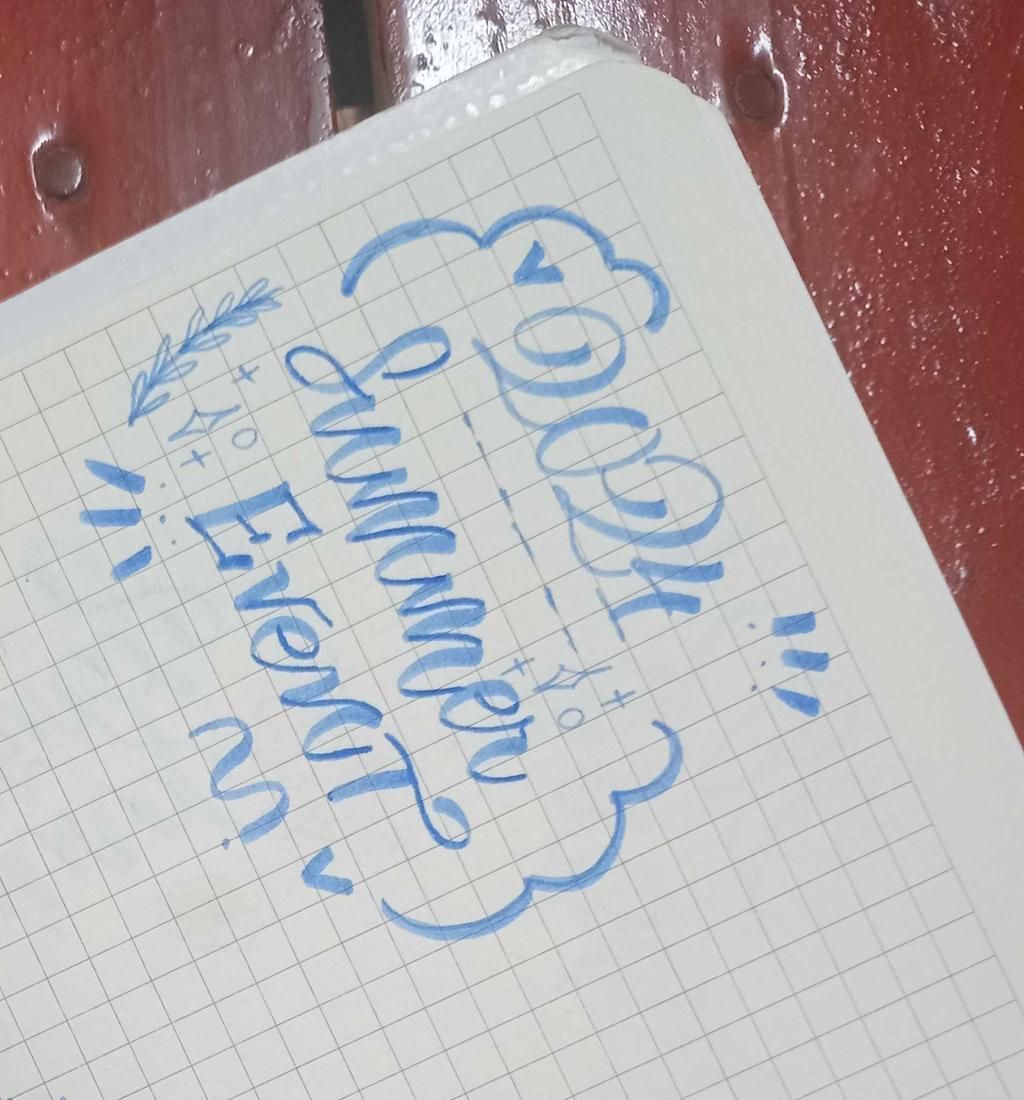 2024
Summer
Event